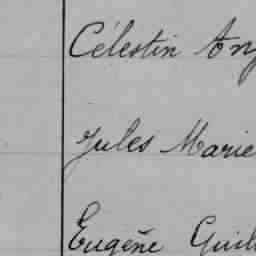 Célestin Ang
Jules Marie
Eugène Guil